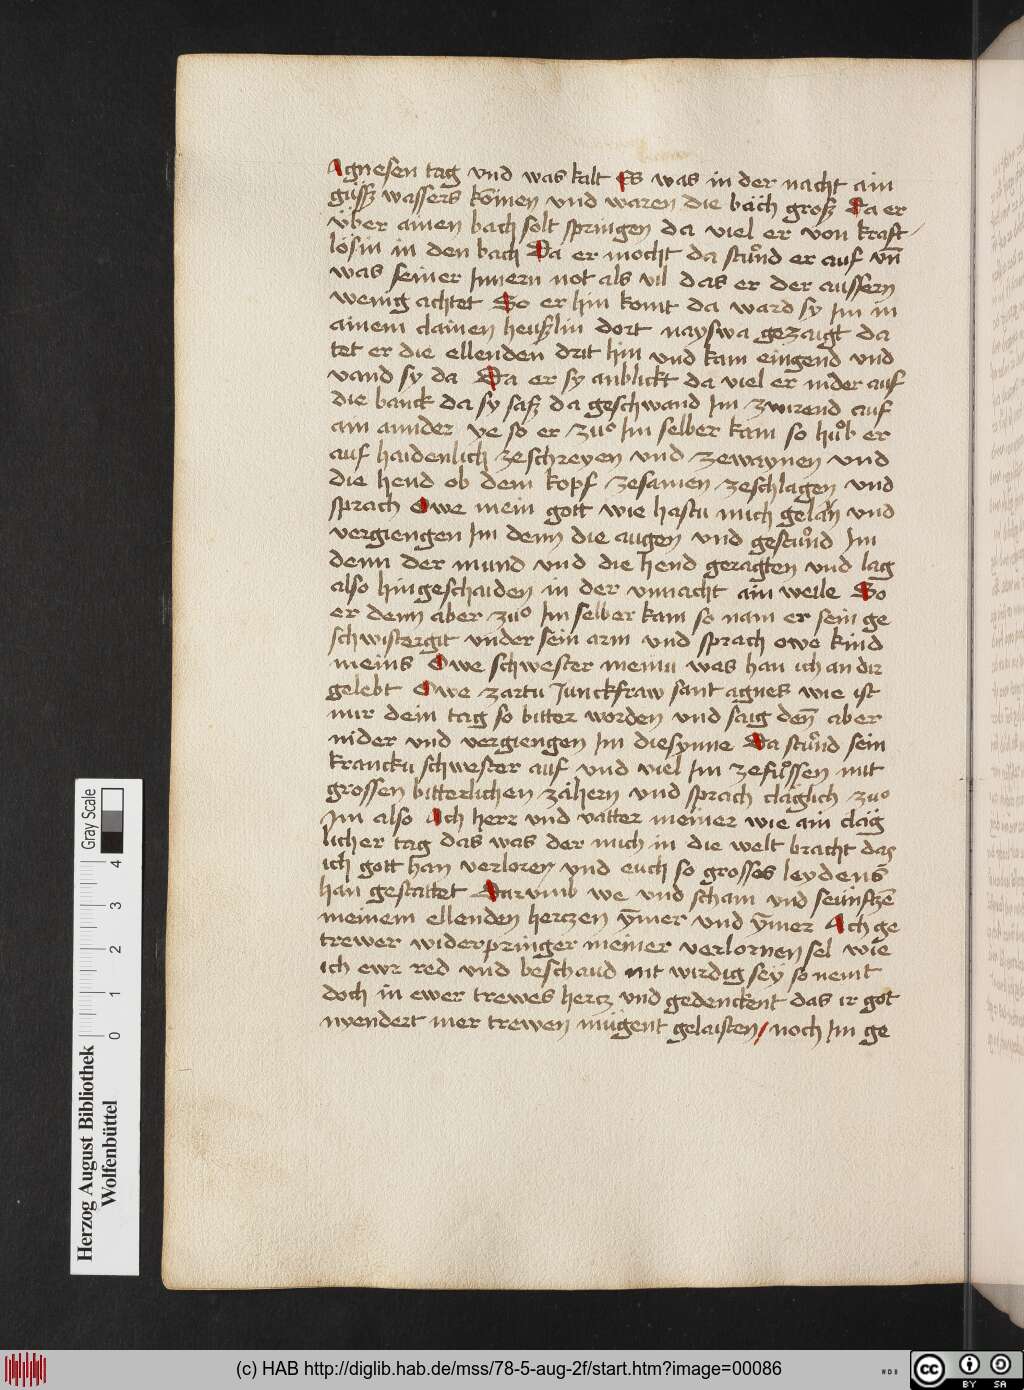 Agnesen tag vnd was kalt Es was in der nacht ain
güsß wassers kōmen vnd waren die bäch groß Da er
über ainen bach solt springen da viel er von kraft
lösin in den bach Da er mocht da stuͦnd er auf vn̄
was seiner Innern not als vil das er der aussern
wenig achtet So er hin komt da ward sy Im in
ainem clainen heußlin dort nayswa gezaigt da
tet er die ellenden drit hin vnd kam eingend vnd
vand sy da Da er sy anblickt da viel er nider auf
die banck da sy saß da geschwand Im zwirend auf
ain ainder ye so er zuͦ Im selber kam so huͦb er
auf haidenlich zeschreyen vnd zewaynen vnd
die hend ob dem kopf zesamen zeschlagen vnd
sprach Owe mein gott wie hastu mich gelän vnd
vergiengen Im denn die augen vnd gestuͦnd Im
denn der mund vnd die hend geragten vnd lag
also hingeschaiden in der vnmacht ain weile So
er denn aber zuͦ Im selber kam so nam er sein ge
schwistergit vnder sein arm vnd sprach owe kind
meins Owe schwester meinu was han ich an dir
gelebt Owe zartu Junckfraw sant agnes wie ist
mir dein tag so bitter worden vnd saig den̄ aber
nider vnd vergiengen Im die synne Da stuͦnd sein
krancku schwester auf vnd viel Im zefuͦssen mit
grossen bitterlichen zähern vnd sprach cläglich zuͦ
Im also Ach herr vnd vatter meiner wie ain cläg
licher tag das was der mich in die welt bracht das
ich gott han verloren vnd euch so grosses leydens
han gestattet Darvmb we vnd scham vnd seünftzē
meinem ellenden hertzen ȳmer vnd ȳmer Ach ge
trewer widerpringer meiner verlornen sel wie
ich ewr red vnd beschaud nit wirdig sey so nemt
doch in ewer trewes hercz vnd gedenckent das ir got
nyendert mer trewen mügent gelaisten/ noch Im ge
Gray Scale
0 1 2 3 4
Herzog August Bibliothek
Wolfenbüttel
(c) HAB http://diglib.hab.de/mss/78-5-aug-2f/start.htm?image=00086
WDB
cc BY SA